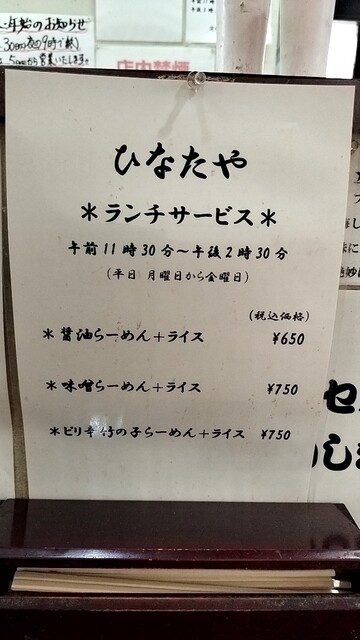 年始のお知らせ
30日(日)夜の9時で(終)
5日(土)から営業いたします
店内禁煙
ひなたや
＊ランチサービス＊
午前11時30分～午後2時30分
(平日 月曜日から金曜日)
(税込価格)
＊醤油らーめん＋ライス ¥650
＊味噌らーめん＋ライス ¥750
＊ピリ辛竹の子らーめん＋ライス ¥750
セ
し